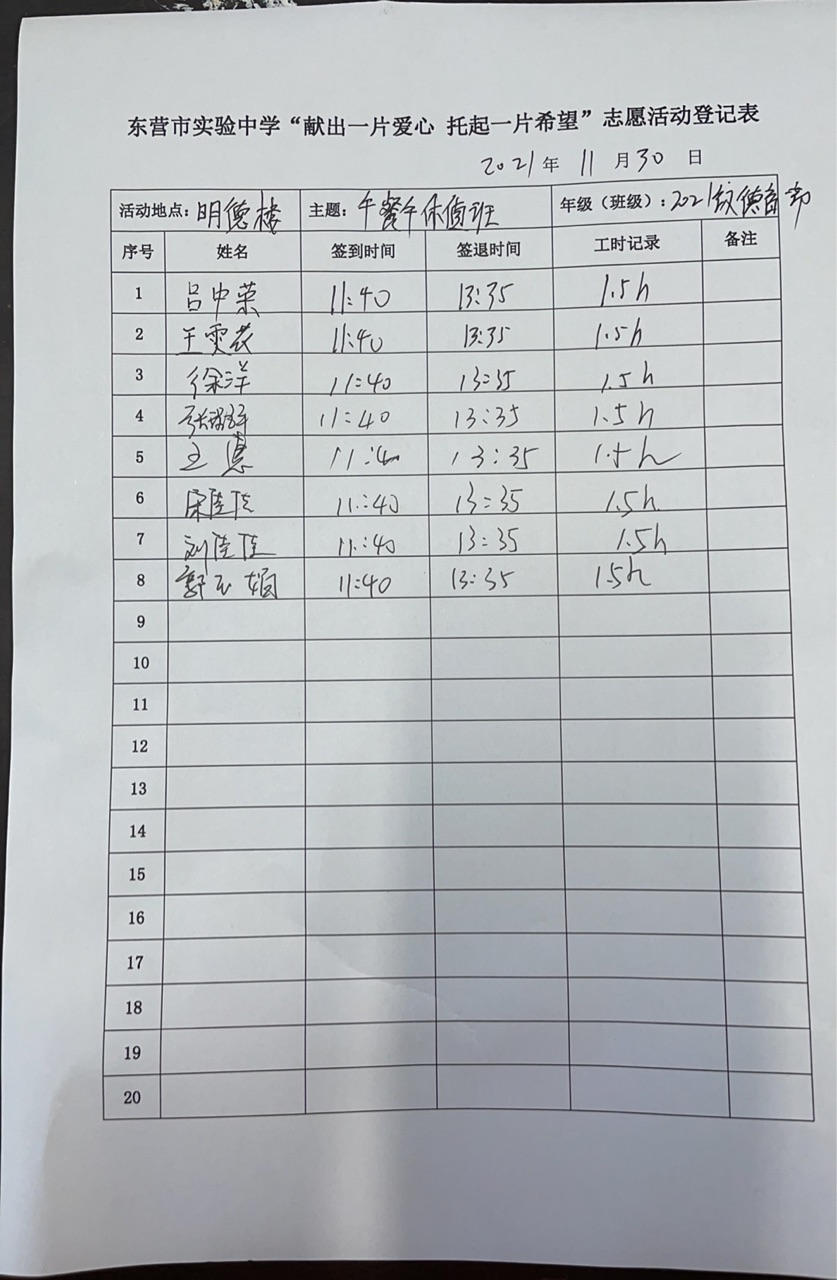 东营市实验中学“献出一片爱心 托起一片希望”志愿活动登记表
2021年 11月30日
活动地点：明德楼 主题：午餐午休值班 年级（班级）：2021级德育部
序号 姓名 签到时间 签退时间 工时记录 备注
1 吕中荣 11:40 13:35 1.5h
2 王雯 11:40 13:35 1.5h
3 徐洋 11:40 13:35 1.5h
4 张 11:40 13:35 1.5h
5 王慧 11:40 13:35 1.5h
6 11:40 13:35 1.5h
7 刘佳佳 11:40 13:35 1.5h
8 郭玉娟 11:40 13:35 1.5h
9
10
11
12
13
14
15
16
17
18
19
20